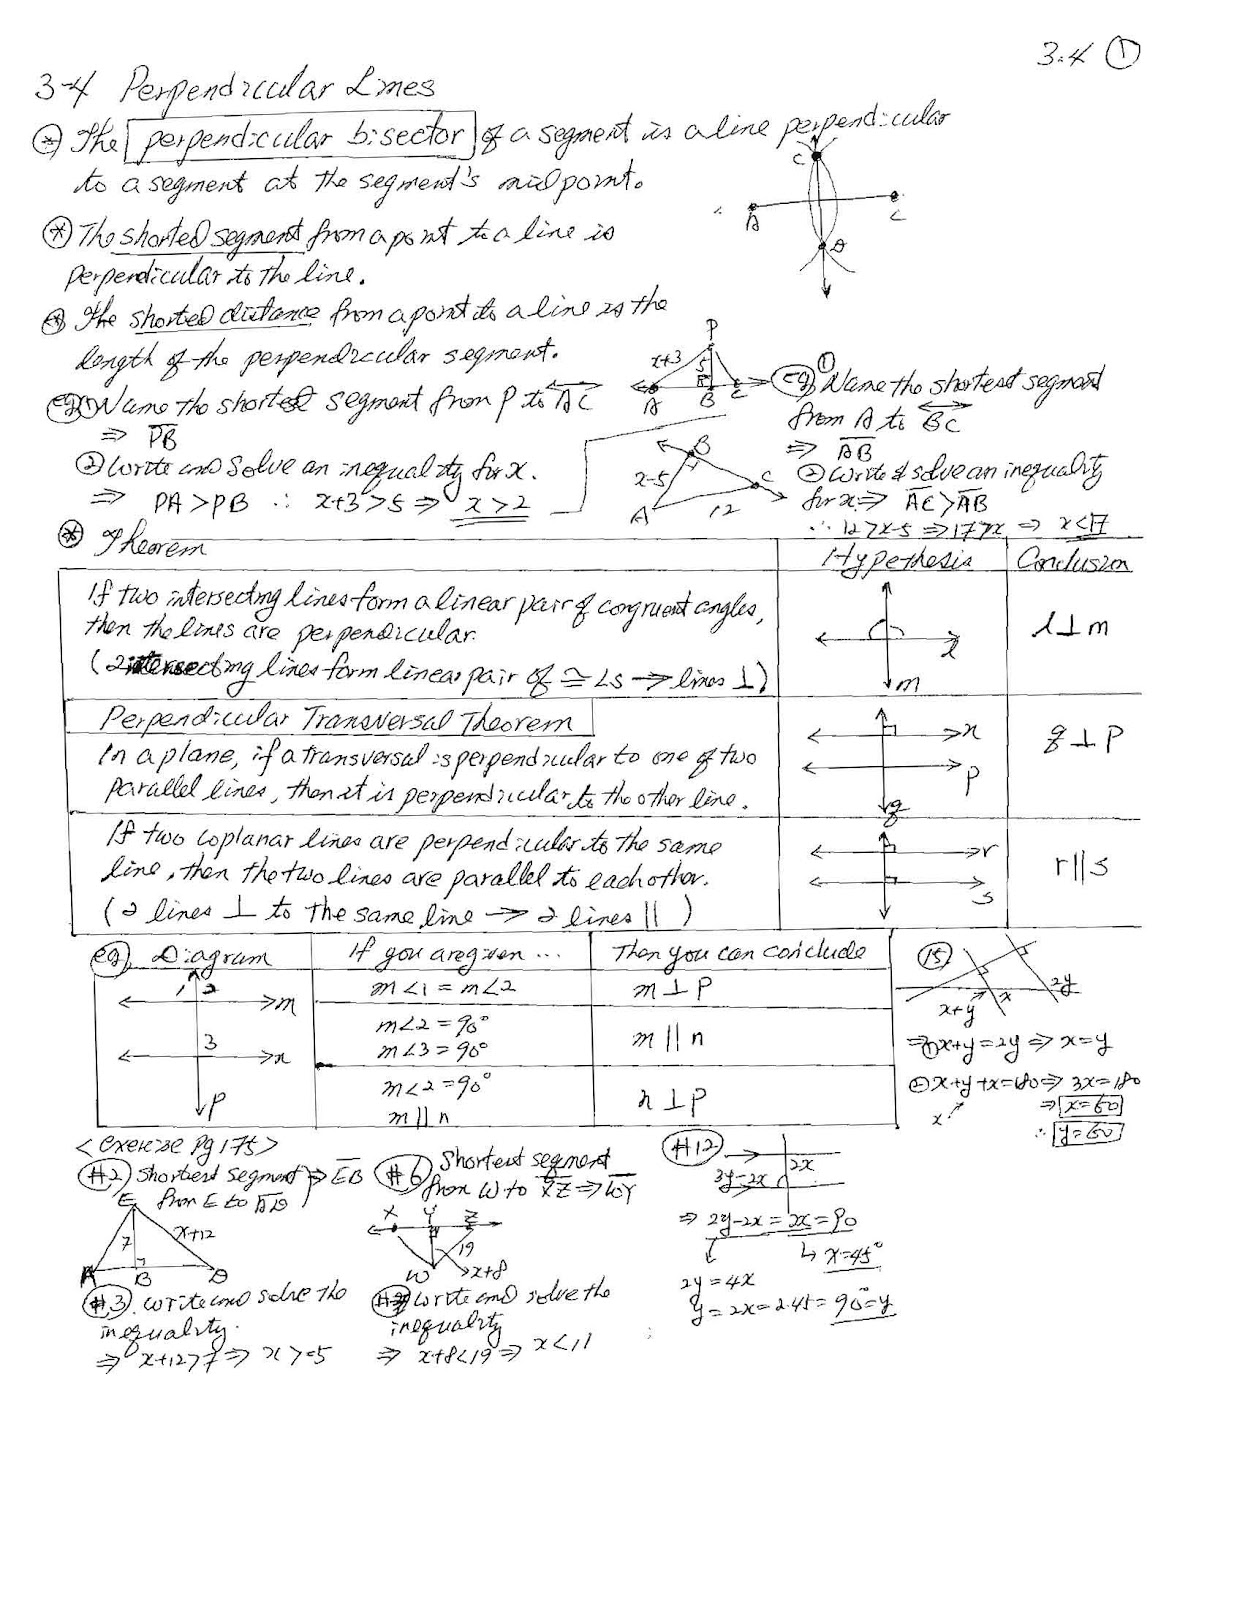 3.4 ①
3-4 Perpendicular Lines
⊛ The perpendicular bisector of a segment is a line perpendicular
to a segment at the segment's midpoint.
C
A
C
D
⊛ The shorted segment from a point to a line is
perpendicular to the line.
⊛ The shorted distance from a point to a line is the
length of the perpendicular segment.
P
x+3
5
A B C
eg) ① Name the shortest segment from P to AC
⇒ PB
② Write and solve an inequality for x.
⇒ PA > PB ∴ x+3 > 5 ⇒ x > 2
eg) ① Name the shortest segment
from A to BC
⇒ AB
② Write & solve an inequality
for x ⇒ AC > AB
∴ 12 > x-5 ⇒ 17 > x ⇒ x < 17
B
x-5
C
A
12
⊛ Theorem
Hypethesis
Conclusion
If two intersecting lines form a linear pair of congruent angles,
then the lines are perpendicular.
(2 intersecting lines form linear pair of ≅ ∠s → lines ⊥)
l
m
l ⊥ m
Perpendicular Transversal Theorem
In a plane, if a transversal is perpendicular to one of two
parallel lines, then it is perpendicular to the other line.
n
p
q
q ⊥ P
If two coplanar lines are perpendicular to the same
line, then the two lines are parallel to each other.
(2 lines ⊥ to the same line → 2 lines ||)
r
s
r || s
eg) Diagram
If you are given ...
Then you can conclude
1 2
m
3
n
P
m∠1 = m∠2
m ⊥ P
m∠2 = 90°
m∠3 = 90°
m || n
m∠2 = 90°
m || n
n ⊥ P
15)
x+y
x
2y
⇒ ① x+y = 2y ⇒ x = y
② x+y+x = 180 ⇒ 3x = 180
x
⇒ x = 60
∴ y = 60
<exercise Pg 175>
#2) Shortest segment ⇒ EB
from E to AD
E
7
x+12
A B D
#3. write and solve the
inequality.
⇒ x+12 > 7 ⇒ x > -5
#6) Shortest segment
from W to XZ ⇒ WY
X Y Z
19
W
x+8
write and solve the
inequality
⇒ x+8 < 19 ⇒ x < 11
#12)
2x
3y-2x
⇒ 2y-2x = 2x = 90
↳ x = 45°
2y = 4x
y = 2x = 2·45 = 90° = y